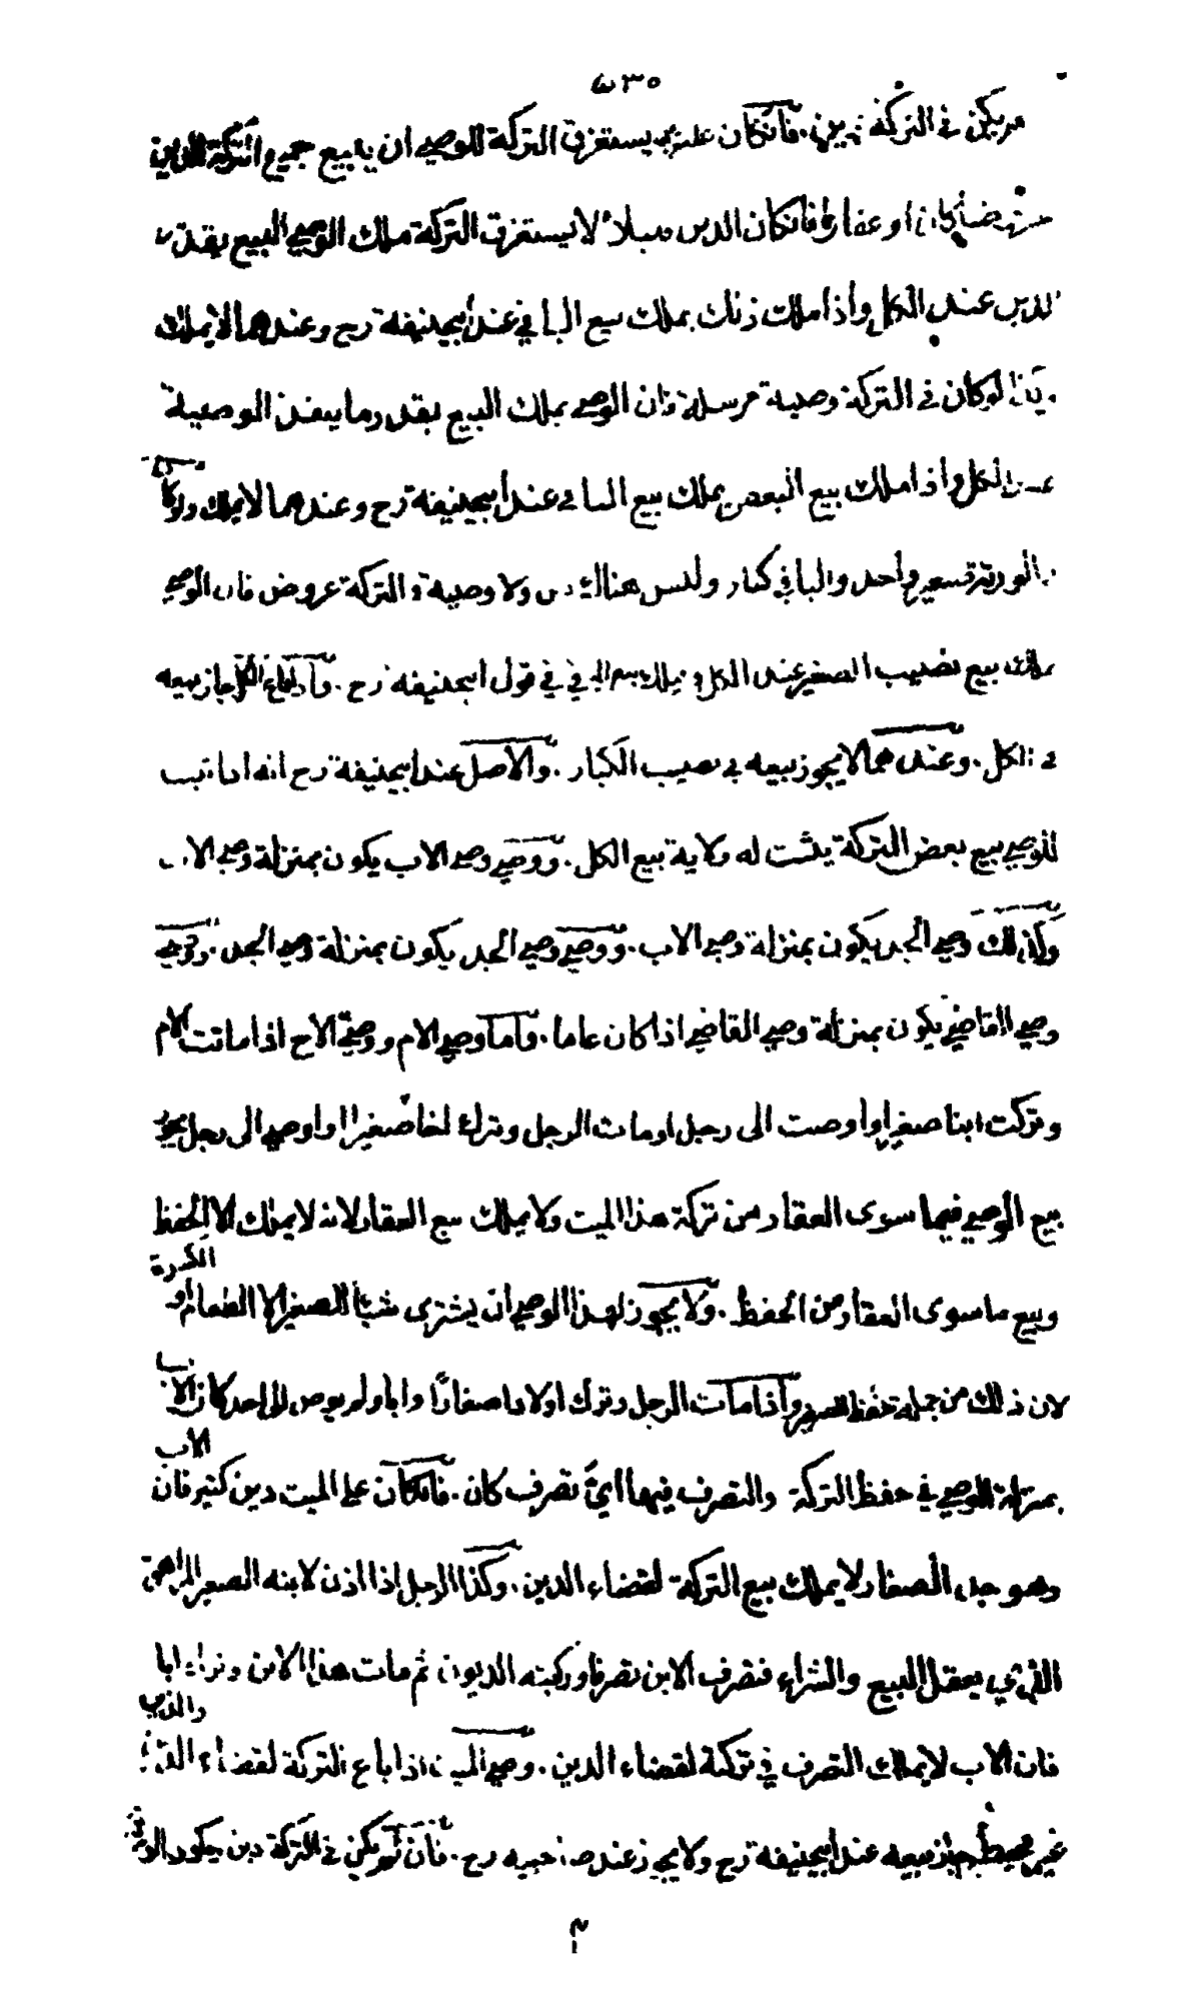 ٥٣٥
لم يكن في التركة دين. فان كان عليه دين يستغرق التركة للوصي ان يبيع جميع التركة للدين
عروضا كان او عقارا فان كان الدين لا يستغرق التركة ملك الوصي البيع بقدر
الدين عند الكل واذا ملك ذلك يملك بيع الباقي عند أبيحنيفة رح وعندهما لا يملك
لو كان في التركة وصية مرسلة فان الوصي يملك البيع بقدر ما ينفذ الوصية
عند الكل واذا ملك بيع البعض يملك بيع الباقي عند أبيحنيفة رح وعندهما لا يملك ولو كان
في الورثة صغير واحد والباقي كبار وليس هناك دين ولا وصية والتركة عروض فان الوصي
يملك بيع نصيب الصغير عند الكل ويملك بيع الباقي في قول ابيحنيفة رح. واذا باع الكل جاز بيعه
في الكل. وعندهما لا يجوز بيعه في نصيب الكبار. والاصل عند ابيحنيفة رح انه اذا ثبت
للوصي بيع بعض التركة يثبت له ولاية بيع الكل. ووصي وصي الاب يكون بمنزلة وصي الاب
وكذلك وصي الجد يكون بمنزلة وصي الاب. ووصي وصي الجد يكون بمنزلة وصي الجد. ووصي
وصي القاضي يكون بمنزلة وصي القاضي اذا كان عاما. واما وصي الام ووصي الأخ اذا ماتت الام
وتركت ابنا صغيرا واوصت الى رجل او مات الرجل وترك اخا صغيرا واوصي الى رجل يجوز
بيع الوصي فيما سوى العقار من تركة هذا الميت ولا يملك بيع العقار لانه لا يملك الا الحفظ
وبيع ما سوى العقار من الحفظ. ولا يجوز لهذا الوصي ان يشتري شيئا للصغير الا الطعام او
الكسوة
لان ذلك من جملة حفظ الصغير واذا مات الرجل وترك اولادا صغارا وابا ولم يوص الى احد كان الاب
بمنزلة الوصي في حفظ التركة والتصرف فيها ايّ تصرف كان. فان كان على الميت دين كثير فان
الاب
وهو جد الصغار لا يملك بيع التركة لقضاء الدين. وكذا الرجل اذا اذن لابنه الصغير المراهق
الذي يعقل البيع والشراء فتصرف الابن تصرفا وركبته الديون ثم مات هذا الابن وترك ابا
فان الاب لا يملك التصرف في تركته لقضاء الدين. وصي الميت اذا باع التركة لقضاء الدين
والدين
غير محيط جاز بيعه عند أبيحنيفة رح ولا يجوز عند صاحبيه رح. فان لم يكن في التركة دين